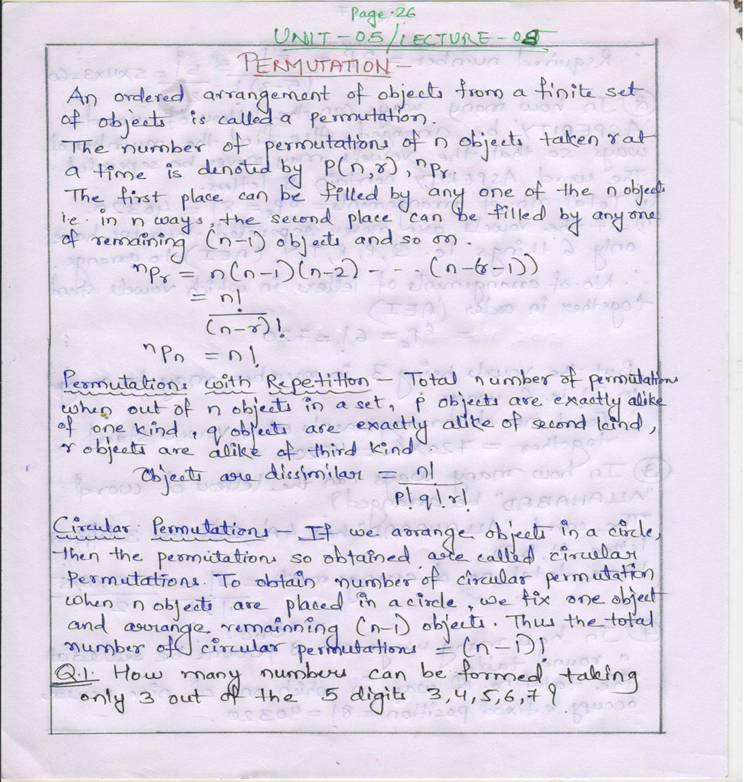 Page.26
UNIT-05/LECTURE-08
PERMUTATION-
An ordered arrangement of objects from a finite set
of objects is called a permutation.
The number of permutations of n objects taken r at
a time is denoted by P(n,r), ⁿPr
The first place can be filled by any one of the n objects
i.e. in n ways, the second place can be filled by any one
of remaining (n-1) objects and so on.
ⁿPr = n(n-1)(n-2) - - - (n-(r-1))
= n!
(n-r)!
ⁿPn = n!
Permutations with Repetition - Total number of permutations
when out of n objects in a set, p objects are exactly alike
of one kind, q objects are exactly alike of second kind,
r objects are alike of third kind
Objects are dissimilar = n!
p! q! r!
Circular Permutations - If we arrange objects in a circle,
then the permutations so obtained are called circular
Permutations. To obtain number of circular permutation
when n objects are placed in a circle, we fix one object
and arrange remainning (n-1) objects. Thus the total
number of circular permutations = (n-1)!
Q.1. How many numbers can be formed taking
only 3 out of the 5 digits 3,4,5,6,7?